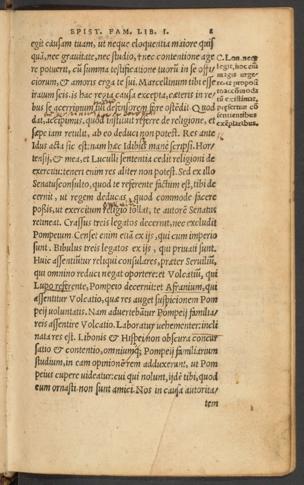 EPIST. FAM. LIB. I. 8
egit causam tuam, ut neque eloquentia maiore quis
quã, nec grauitate, nec studio, nec contentione age
re potuerit, cũ summa testificatione tuorũ in se offi
ciorum, & amoris erga te sui. Marcellinum tibi esse
iratum scis. is hac regia causa excepta, cæteris in re
bus se acerrimum tui defensorem fore ostẽdit. Quod
dat, accipimus. quod instituit referre de religione, et
sæpe iam retulit, ab eo deduci non potest. Res ante
Idus acta sic est: nam hæc Idibus mane scripsi. Hor
tensij, & mea, et Luculli sententia cedit religioni de
exercitu: teneri enim res aliter non potest. Sed ex illo
Senatusconsulto, quod te referente factum est, tibi de
cernit, ut regem deducas, quod commode facere
possis, ut exercitum religio tollat, te autorẽ Senatus
retineat. Crassus treis legatos decernit, nec excludit
Pompeium. Censet enim etiã ex ijs, qui cum imperio
sunt. Bibulus treis legatos ex ijs, qui priuati sunt.
Huic assentiũtur reliqui consulares, præter Seruiliũ,
qui omnino reduci negat oportere: et Volcatiũ, qui
Lupo referente, Pompeio decernit: et Afranium, qui
assentitur Volcatio, quæ res auget suspicionem Pom
peij voluntatis. Nam aduertebãtur Pompeij familia/
reis assentire Volcatio. Laboratur uehementer: incli
nata res est. Libonis & Hypsei non obscura concur
satio & contentio, omniumq; Pompeij familiarium
studium, in eam opinionẽ rem adduxerunt, ut Pom
peius cupere uideatur. cui qui nolunt, ijdẽ tibi, quod
eum ornasti non sunt amici. Nos in causa autorita/
tem
C. Lon. neq;
legit, hoc eũ
magis urge-